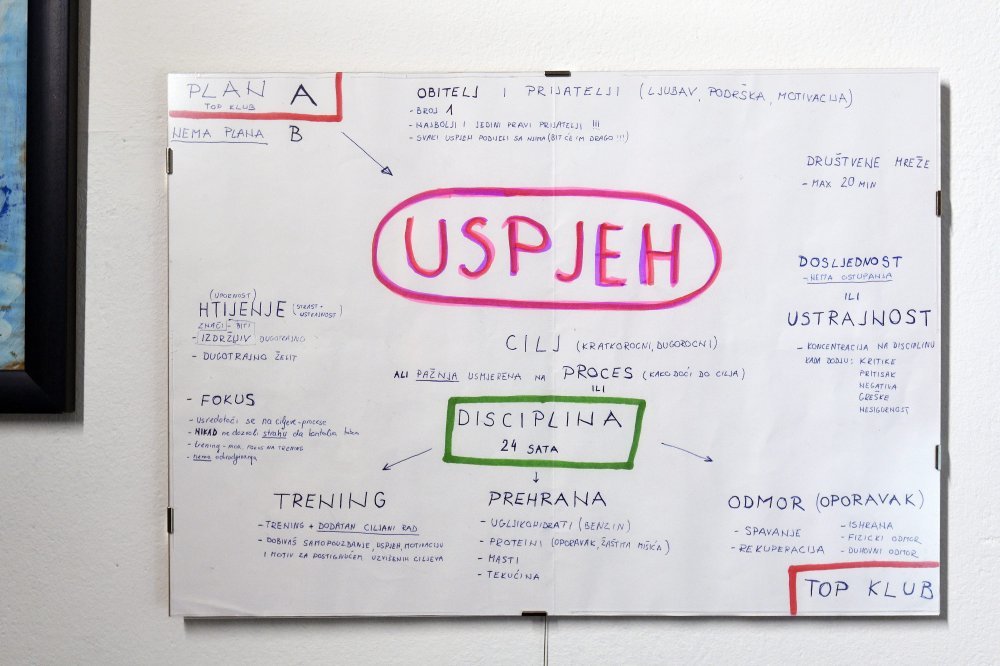 PLAN A
TOP KLUB
NEMA PLANA B
OBITELJ I PRIJATELJI (LJUBAV, PODRŠKA, MOTIVACIJA)
- BROJ 1
- NAJBOLJI I JEDINI PRAVI PRIJATELJI !!!
- SVAKI USPJEH PODIJELI SA NJIMA (BIT ĆE IM DRAGO !!!)
DRUŠTVENE MREŽE
- MAX 20 MIN
USPJEH
DOSLJEDNOST
- NEMA ODSTUPANJA
ILI
USTRAJNOST
- KONCENTRACIJA NA DISCIPLINU
KADA DODJU: KRITIKE
PRITISAK
NEGATIVA
GREŠKE
NESIGURNOST
(UPORNOST)
HTIJENJE (STRAST + USTRAJNOST)
ZNAČI - BITI
- IZDRŽLJIV DUGOTRAJNO
- DUGOTRAJNO ŽELIT
CILJ (KRATKOROČNI, DUGOROČNI)
ALI PAŽNJA USMJERENA NA PROCES (KAKO DOĆI DO CILJA)
ILI
DISCIPLINA
24 SATA
- FOKUS
- usredotoči se na ciljeve-procese
- NIKAD ne dozvoli strahu da
- trening - max. FOKUS NA TRENING
- nema odradjivanja
TRENING
- TRENING + DODATAN CILJANI RAD
- DOBIVAŠ SAMOPOUZDANJE, USPJEH, MOTIVACIJU
I MOTIV ZA POSTIGNUĆEM UZVIŠENIH CILJEVA
PREHRANA
- UGLJIKOHIDRATI (BENZIN)
- PROTEINI (OPORAVAK, ZAŠTITA MIŠIĆA)
- MASTI
- TEKUĆINA
ODMOR (OPORAVAK)
- SPAVANJE
- REKUPERACIJA
- ISHRANA
- FIZIČKI ODMOR
- DUHOVNI ODMOR
TOP KLUB